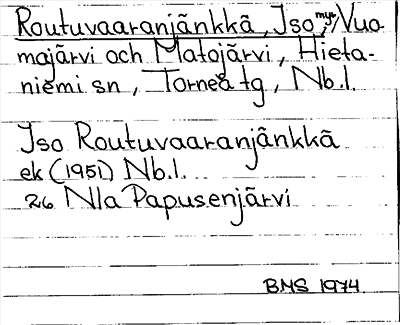 Routuvaaranjänkkä, Iso, myr, Vuo-
majärvi och Matojärvi, Hieta-
niemi sn, Torneå tg, Nb.l.
Iso Routuvaaranjänkkä
ek (1951) Nb.l.
26 Nla Papusenjärvi
BMS 1974